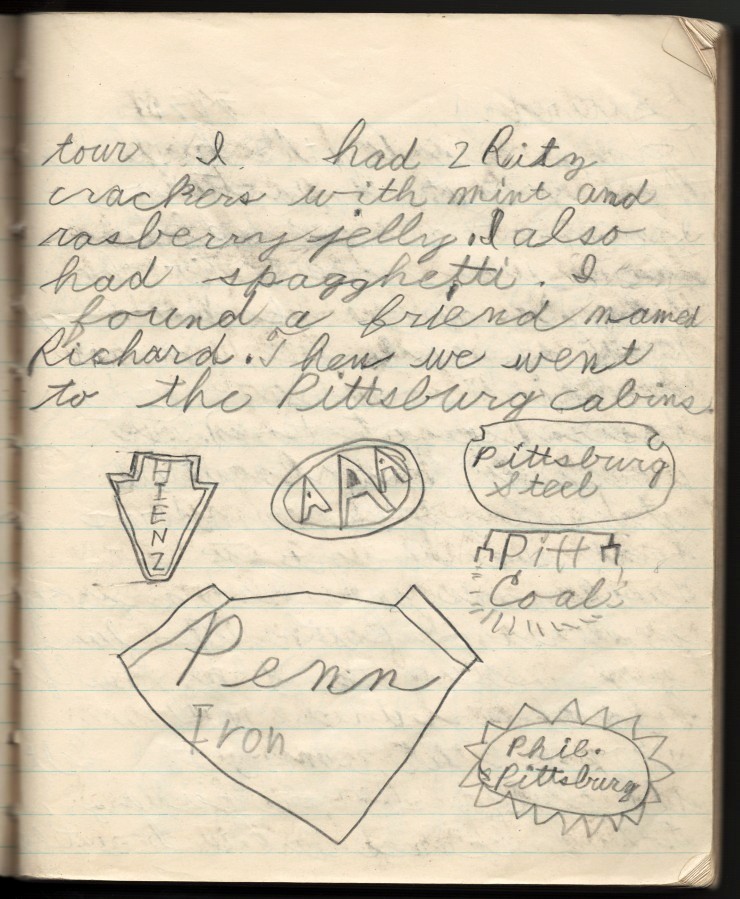 tour I had 2 Ritz
crackers with mint and
rasberry jelly. I also
had spagghetti. I
found a friend named
Richard. Then we went
to the Pittsburg cabins.
HIENZ
AAA
Pittsburg
Steel
Pitt
Coal
Penn
Iron
Phil.
Pittsburg